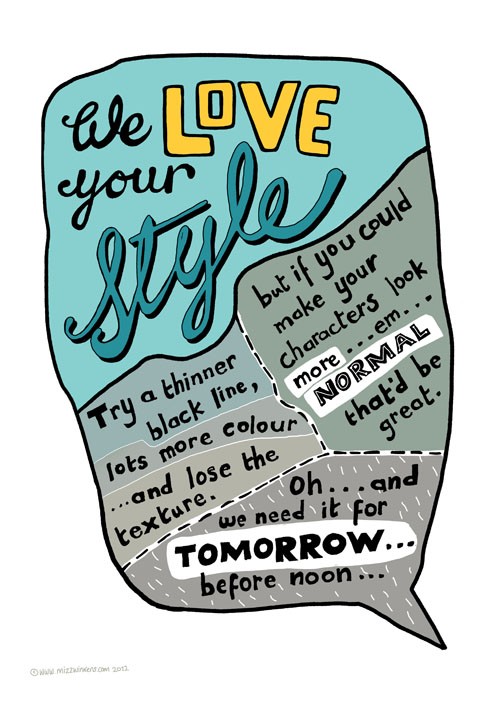 We LOVE
your
Style
but if you could
make your
characters look
more...em...
NORMAL
that'd be
great.
Try a thinner
black line,
lots more colour
...and lose the
texture.
Oh...and
we need it for
TOMORROW...
before noon...
©www.mizzwinkens.com 2012